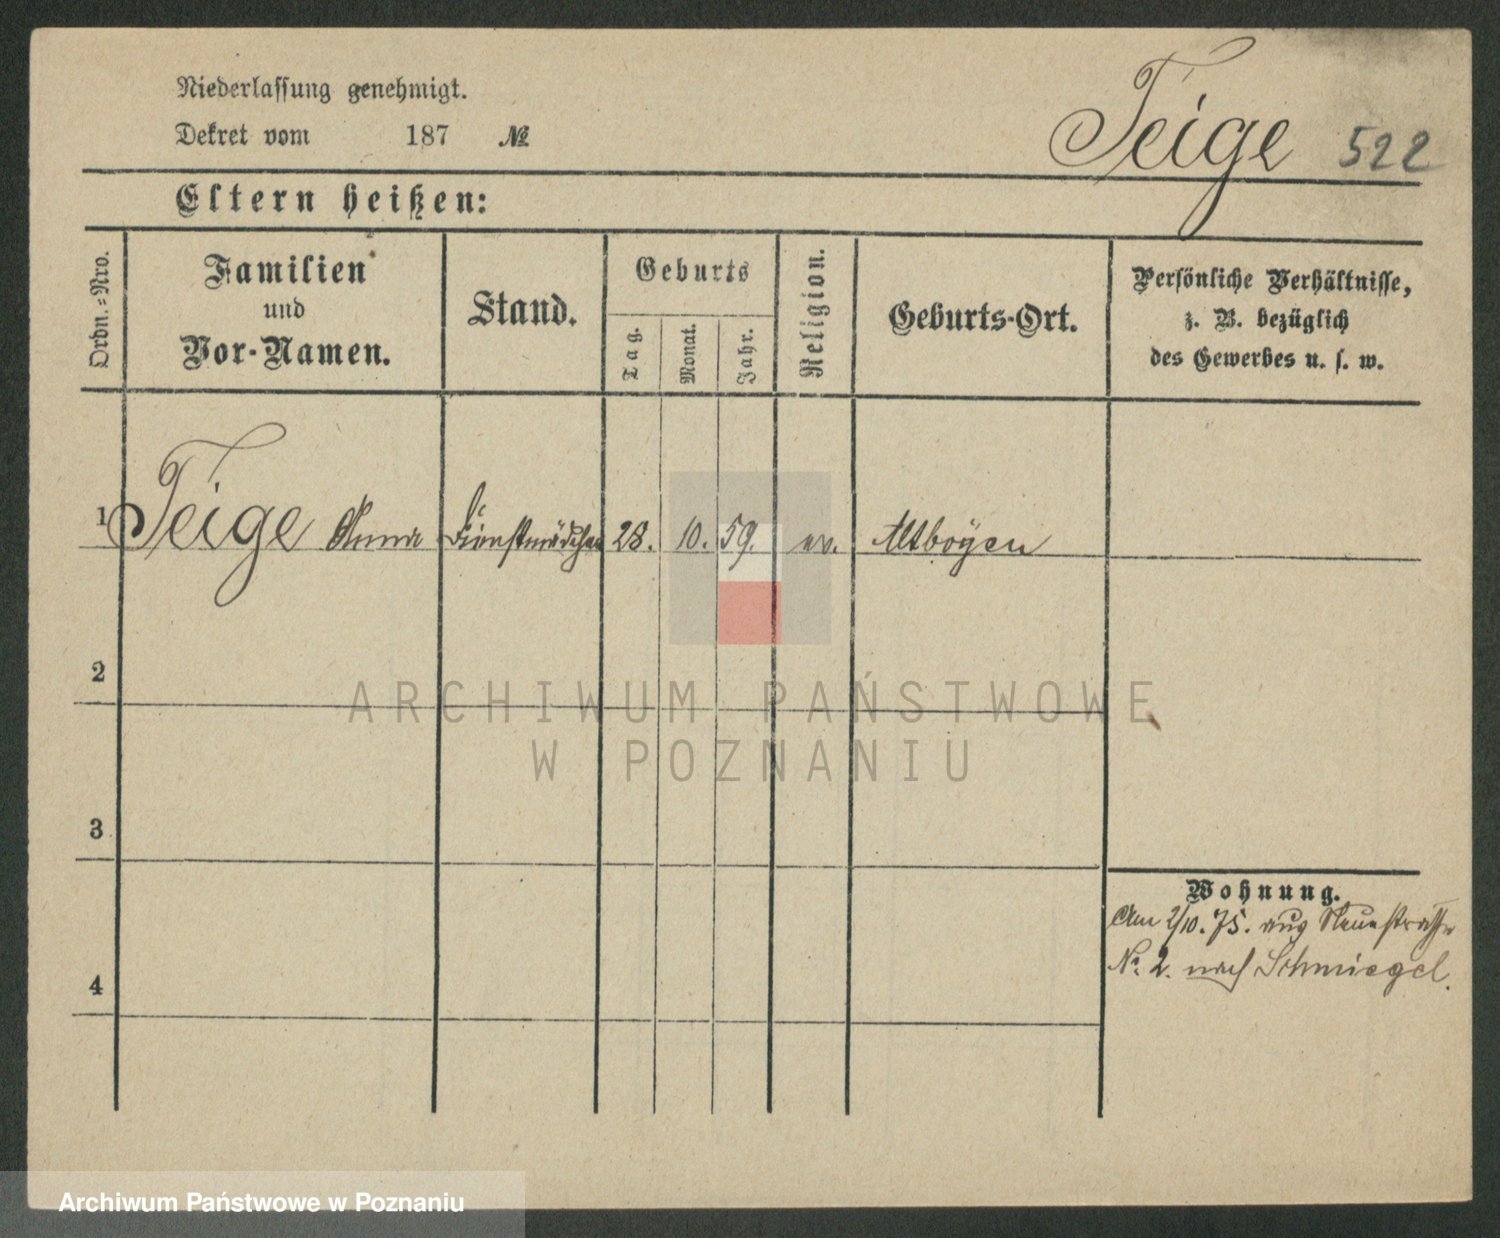 Niederlassung genehmigt.
Dekret vom 187 №
Teige 522
Eltern heißen:
Ordn.-Nro.
Familien
und
Vor-Namen.
Stand.
Geburts
Tag.
Monat.
Jahr.
Religion.
Geburts-Ort.
Persönliche Verhältnisse,
z. B. bezüglich
des Gewerbes u. s. w.
1 Teige Anna Dienstmädchen 28. 10. 59. ev. Altboyen
2
ARCHIWUM PAŃSTWOWE
W POZNANIU
3
Wohnung.
Am 2/10. 75. aus Neuestrasse
No. 2. nach Schmiegel.
4
Archiwum Państwowe w Poznaniu